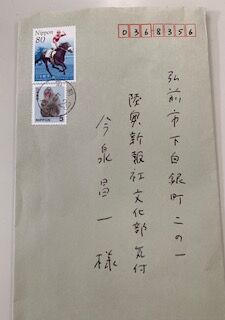 Nippon
80
NIPPON
5
0368356
弘前市下白銀町二の一
陸奥新報社文化部気付
今泉昌一様